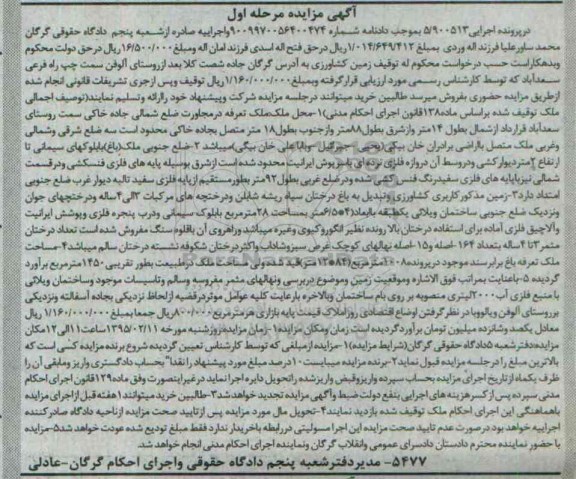 آگهی مزایده مرحله اول
درپرونده اجرایی ۵/۹۰۰۵۱۳ بموجب دادنامه شماره ۹۰۰۹۹۷۰۰۵۶۴۰۰۴۷۴ واجراییه صادره ازشعبه پنجم دادگاه حقوقی گرگان
محمد ساورعلیا فرزند اله وردی بمبلغ ۱/۰۱۴/۶۴۹/۴۱۲ ریال درحق فتح اله اسدی فرزند امان اله ومبلغ ۱۶/۵۰۰/۰۰۰ ریال درحق دولت محکوم
وبدهکاراست حسب درخواست محکوم له توقیف زمین کشاورزی به آدرس گرگان جاده شصت کلا بعد ازروستای آلوفن سمت چپ راه فرعی
سعدآباد که توسط کارشناس رسمی مورد ارزیابی قرارگرفته وبمبلغ ۱/۱۶۰/۰۰۰/۰۰۰ ریال توقیف وپس ازجری تشریفات قانونی انجام شده
ازطریق مزایده حضوری بفروش میرسد طالبین خرید میتوانند درجلسه مزایده شرکت وپیشنهاد خود راارائه وتسلیم نمایند(توصیف اجمالی
ملک توقیف شده براساس ماده ۱۳۸ قانون اجرای احکام مدنی)۱-محل ملک،ملک تعرفه درمجاورت ضلع شمالی جاده خاکی سمت روستای
سعدآباد قرارداد ازشمال بطول ۱۴ متر وازشرق بطول ۸۸ متر وازجنوب بطول ۱۸ متر متصل بجاده خاکی محدود است سه ضلع شرقی وشمالی
وغربی ملک متصل باراضی برادران خان بیگی(یحیی-جبرائیل-وباباعلی خان بیگی)میباشد ۲-ضلع جنوبی ملک(باغ)بابلوکهای سیمانی تا
ارتفاع ۲متردیوارکشی ودروسط آن دروازه فلزی نرده ای باسرپوش ایرانیت محدود شده است ازشرق بوسیله پایه های فلزی فنسکشی ودرقسمت
شمالی نیزباپایه های فلزی سفیدرنگ فنس کشی شده ودرضلع غربی بطول ۹۲ متر بطورمستقیم ازپایه فلزی سفید تالبه دیوار غرب ضلع جنوبی
امتداد دارد۳-زمین مذکورکاربری کشاورزی وتبدیل به باغ درختان سیاه ریشه شابلن ودرختچه های مرکبات ۲الی۴ساله ودرختچهای جوان
ونزدیک ضلع جنوبی ساختمان ویلائی یکطبقه باابعاد(۴*۶/۵)متر بمساحت ۲۸مترمربع بابلوک سیمانی ودرب پنجره فلزی وپوشش ایرانیت
وآلاچیق فلزی آماده برای استفاده درختان بالا رونده نظیر انگوروکیوی وغیره میباشد وراهروی آن باقلوه سنگ مفروش شده است تعداد درختان
مثمر۳تا۴ساله بتعداد ۱۶۴-اصله و۱۵-اصله نهالهای کوچک غرض سبزوشاداب واکثردرختان شکوفه نشسته درختان سالم میباشد۴-مساحت
ملک تعرفه باغ برابرسند موجود درپرونده ۱۰۰۸مترمربع(۸۴*۱۲متر)قیدشده ولی مساحت ملک درطبیعت بطور تقریبی ۱۴۵۰مترمربع برآورد
گردیده ۵-باعنایت بمراتب فوق الاشاره وموقعیت زمین وموضوع دربررسی ونهالهای مثمر مغروسه وسالم وتاسیسات موجود وساختمان ویلائی
با منبع فلزی آب ۲۰۰۰لیتری منصوبه بر روی بام ساختمان وبالاخره بارعایت کلیه عوامل موثردرقضیه ازلحاظ نزدیکی بجاده آسفالته ونزدیکی
برروستای آلوفن ویالوویا در نظر گرفتن اوضاع اقتصادی روزاملاک قیمت پایه بازاری هرمترمربع ۸۰۰/۰۰۰ ریال جمعا بمبلغ ۱/۱۶۰/۰۰۰/۰۰۰ ریال
معادل یکصد وشانزده میلیون تومان برآوردگردیده است زمان ومکان مزایده۱-زمان مزایده،روزشنبه مورخه ۱۳۹۵/۰۲/۱۱ ساعت ۱۱الی۱۲مکان
مزایده دفترشعبه ۵دادگاه حقوقی گرگان(شرایط مزایده)۱-مزایده ازمبلغی که توسط کارشناس تعیین گردیده شروع برنده مزایده کسی است که
بالاترین مبلغ را درجلسه مزایده قبول نماید۲-برنده مزایده میبایست ۱۰درصد مبلغ مورد پیشنهاد را نقدا"بحساب دادگستری واریز ومابقی آن را
ظرف یکماه ازتاریخ اجرای مزایده بحساب سپرده واریزوقبض واریزشده راتحویل دایره اجرا نماید درغیراینصورت وفق ماده ۱۲۹قانون اجرای احکام
مدنی سپرده پس ازکسرهزینه های اجرایی بنفع دولت ضبط وآگهی مزایده تجدید خواهدشد۳-طالبین خرید میتوانند۱هفته قبل ازاجرای مزایده
باهماهنگی این اجرای احکام ملک توقیف شده بازدید نمایند۴-تحویل مال مورد مزایده پس ازتایید صحت مزایده ازناحیه دادگاه صادرکننده
اجراییه خواهد بود درصورت عدم تایید صحت مزایده این اجرا مسولیتی دررابطه باخریدار ندارد فقط مبلغ تودیع شده عودت خواهد شد۵-مزایده
با حضور نماینده محترم دادستان دادسرای عمومی وانقلاب گرگان ونماینده اجرای احکام مدنی انجام خواهد شد.
۵۴۷۷- مدیردفترشعبه پنجم دادگاه حقوقی واجرای احکام گرگان-عادلی